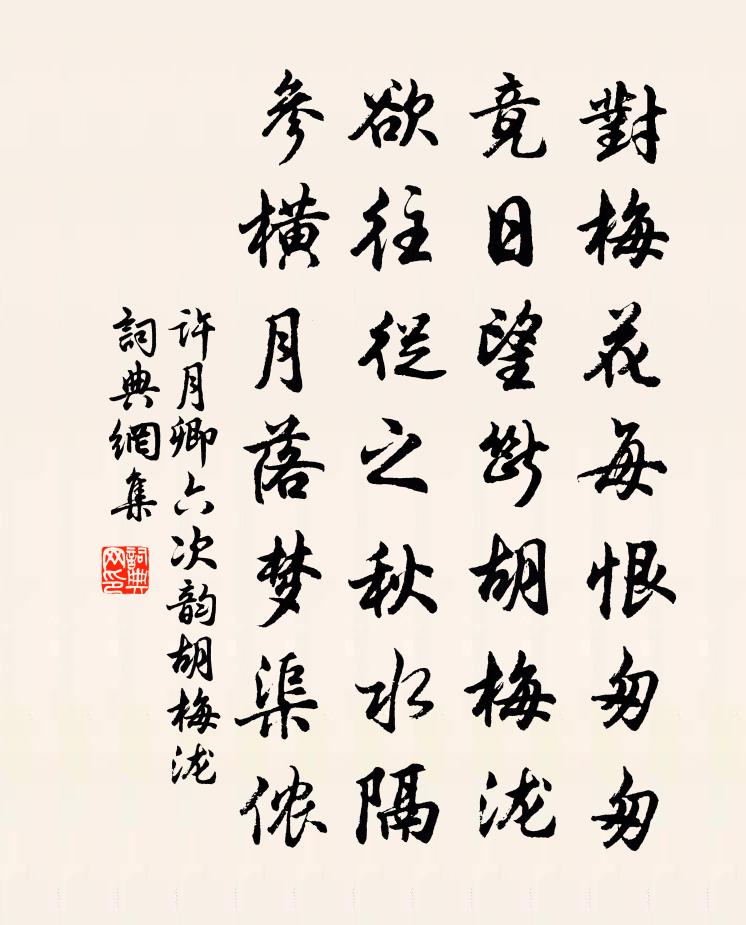 對梅花每恨匆匆
竟日望斷胡梅泷
欲往從之秋水隔
參横月落梦渠侬
許月卿六次韵胡梅泷
詞典網集
詞典网印